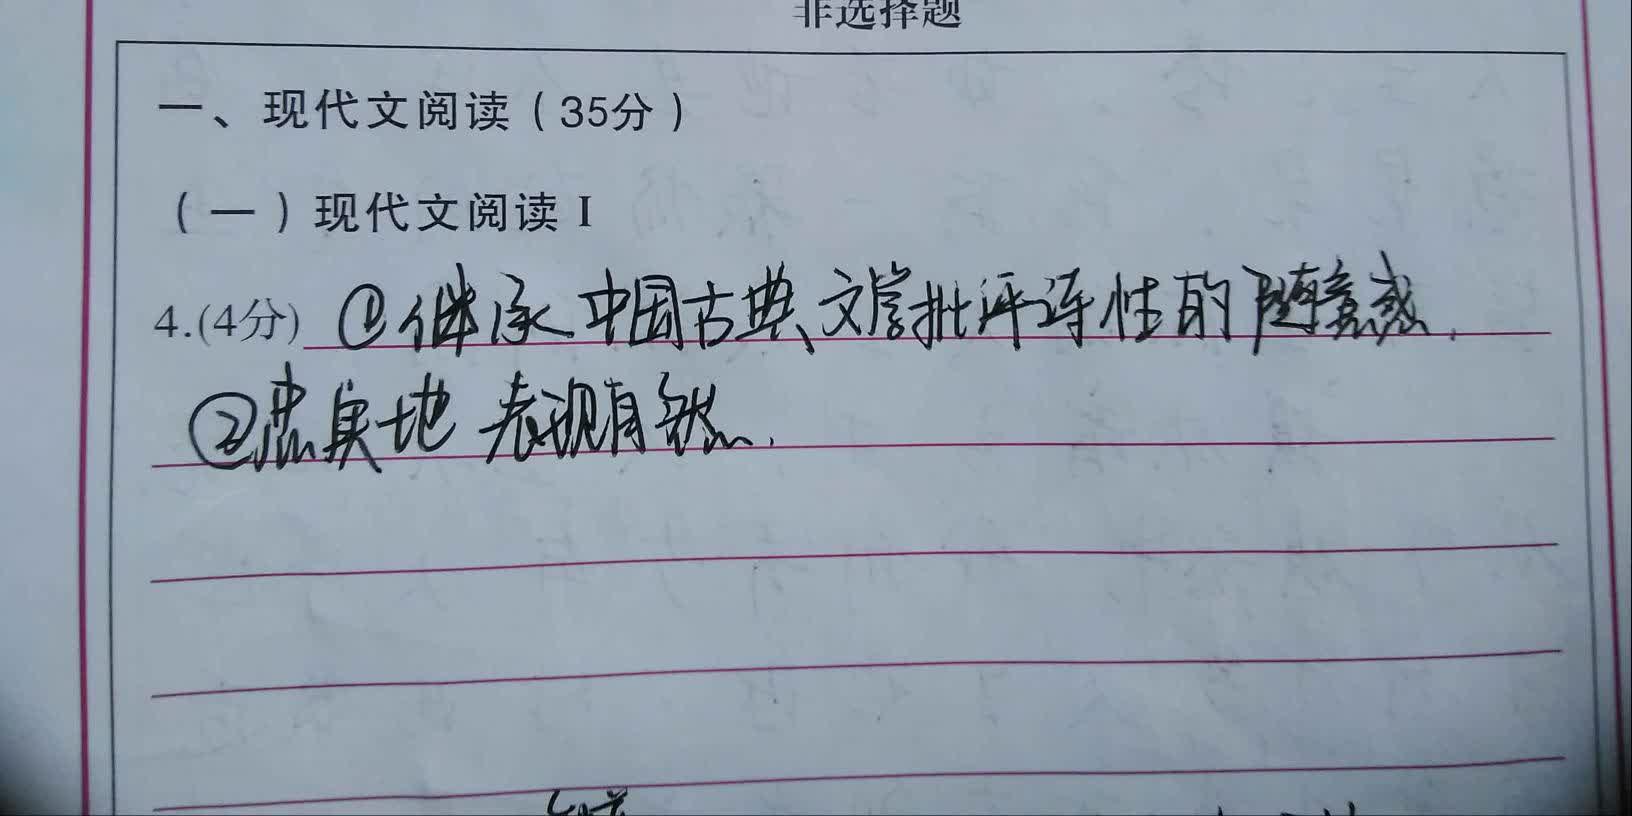 非选择题
一、现代文阅读（35分）
（一）现代文阅读 I
4.(4分) ①继承中国古典文学批评诗性的随意感.
②忠实地表现自然.